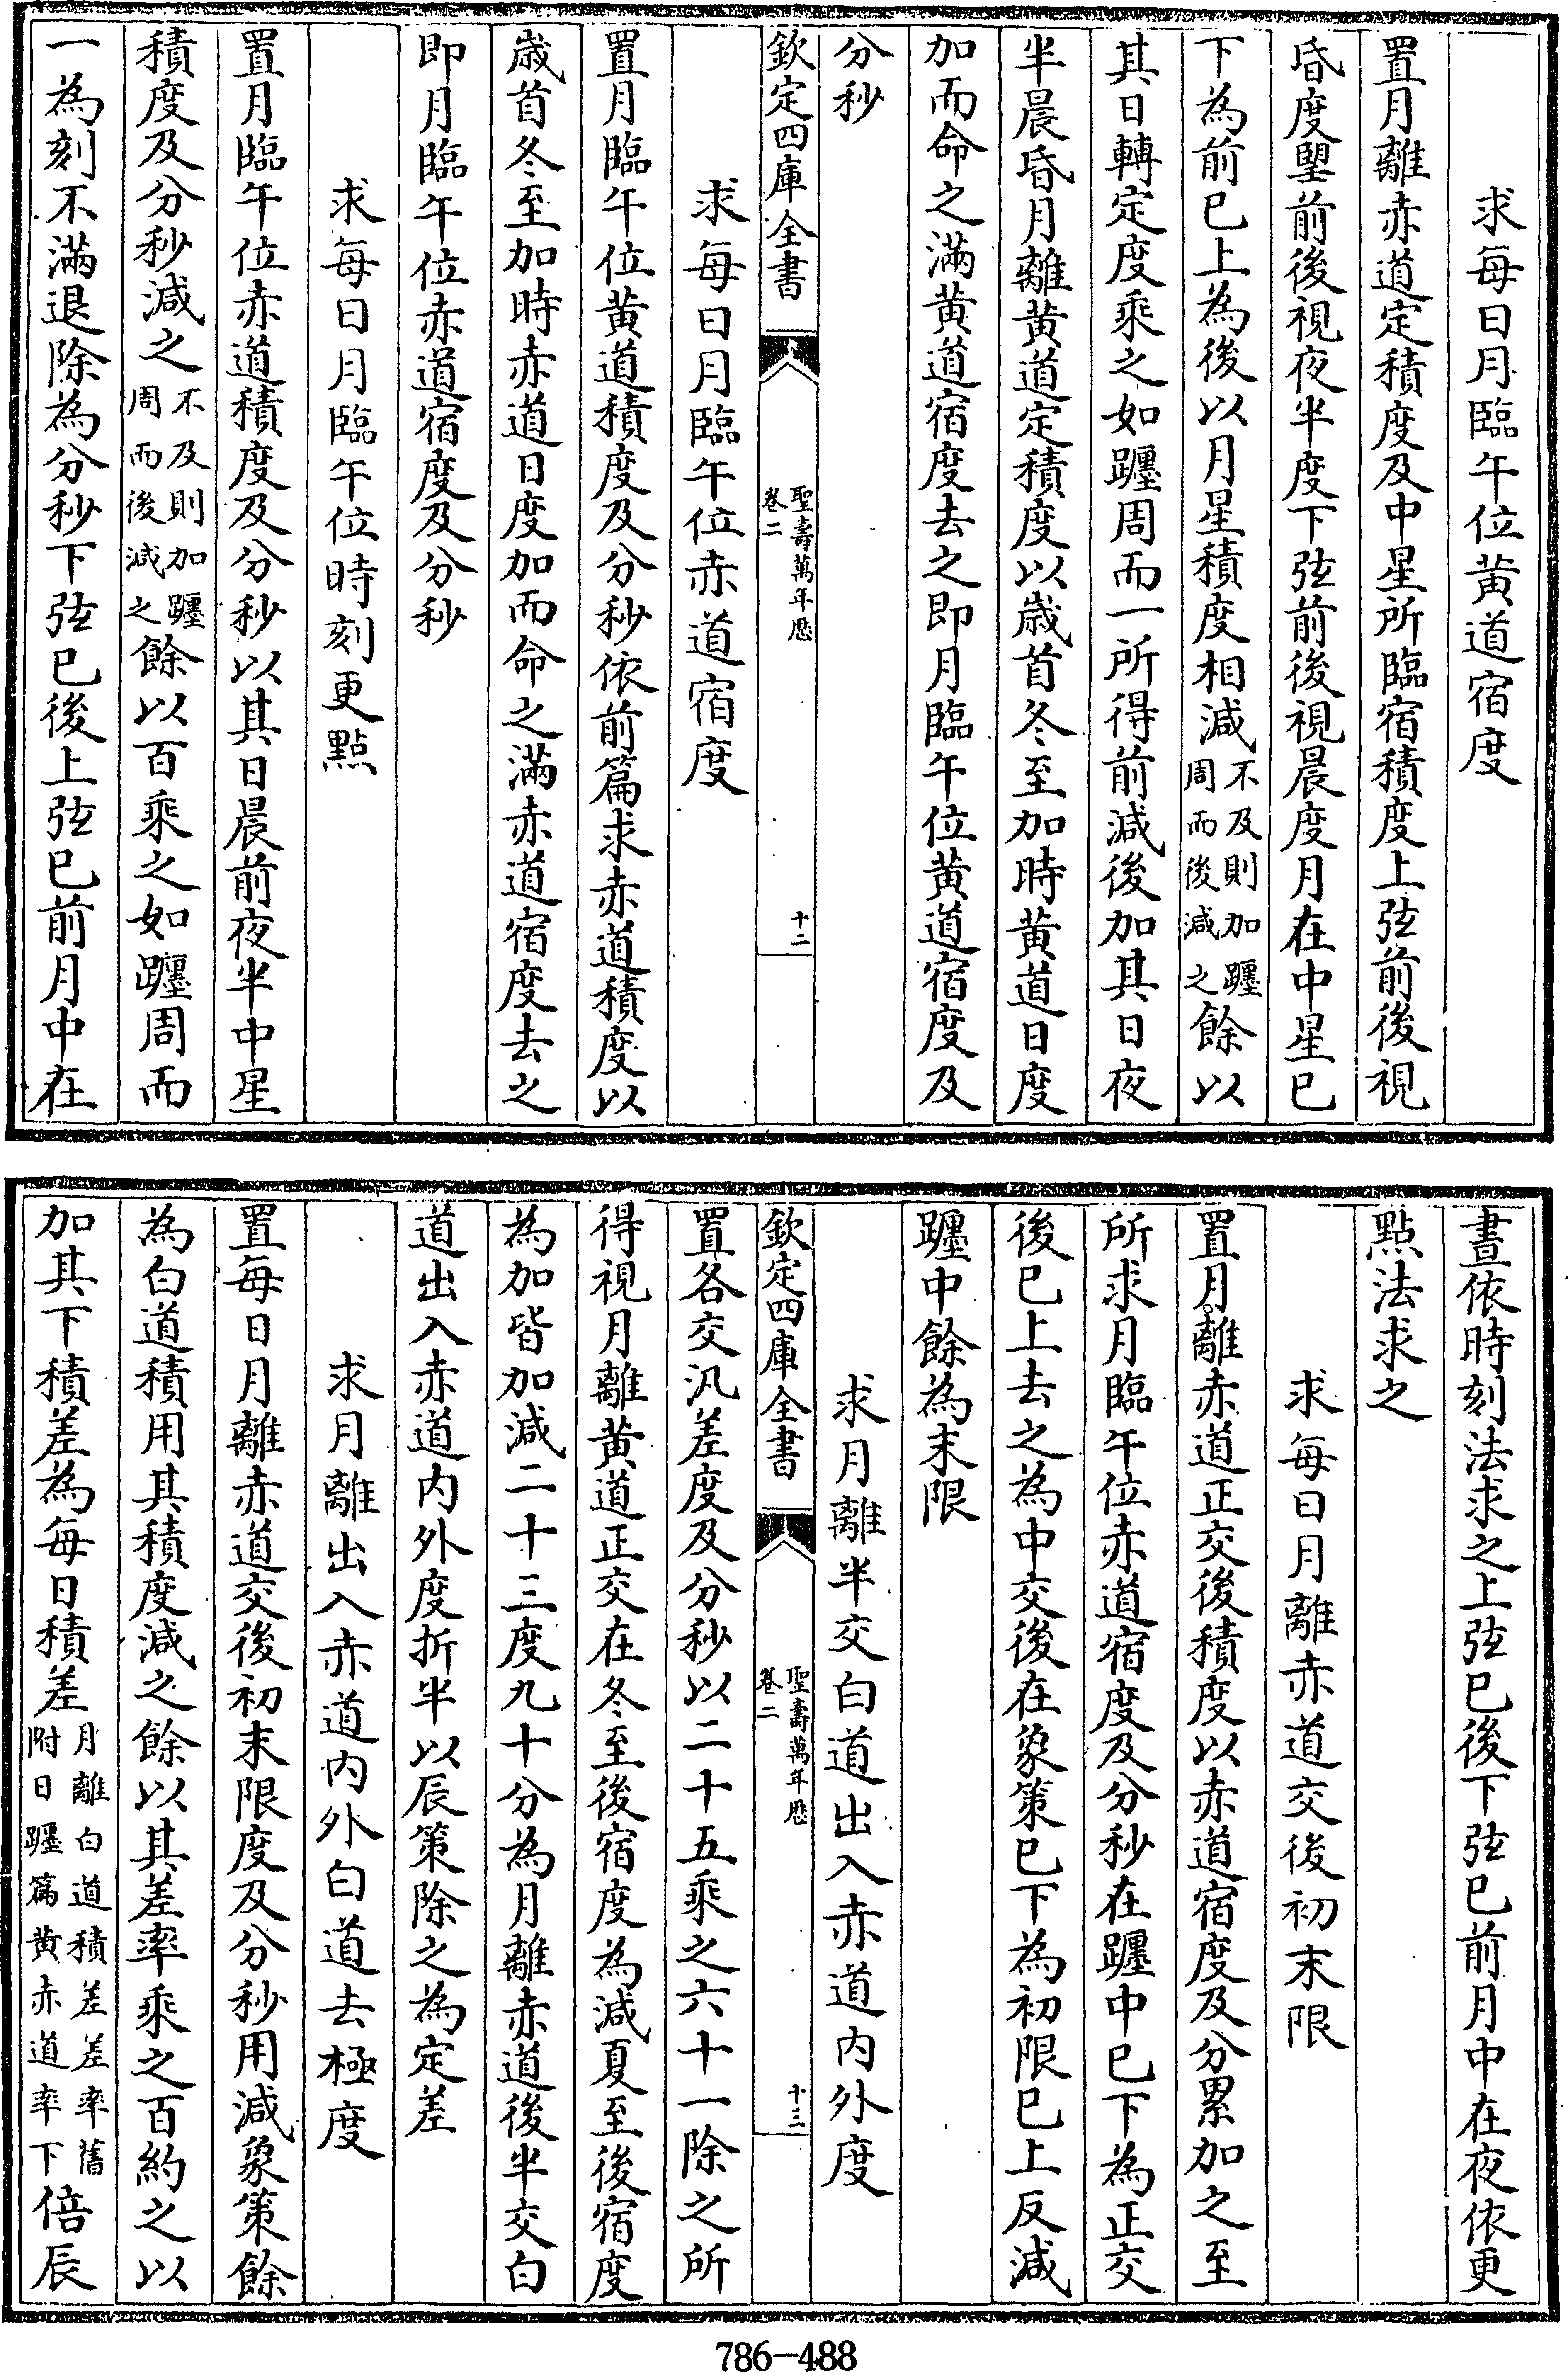 求每日月臨午位黄道宿度
置月離赤道定積度及中星所臨宿積度上弦前後視
昏度朢前後視夜半度下弦前後視晨度月在中星已
下為前已上為後以月星積度相減不及則加躔周而後減之餘以
其日轉定度乘之如躔周而一所得前減後加其日夜
半晨昏月離黄道定積度以歲首冬至加時黄道日度
加而命之滿黄道宿度去之即月臨午位黄道宿度及
分秒
欽定四庫全書 聖壽萬年厯 卷二 十二
求每日月臨午位赤道宿度
置月臨午位黄道積度及分秒依前篇求赤道積度以
歲首冬至加時赤道日度加而命之滿赤道宿度去之
即月臨午位赤道宿度及分秒
求每日月臨午位時刻更點
置月臨午位赤道積度及分秒以其日晨前夜半中星
積度及分秒減之不及則加躔周而後減之餘以百乘之如躔周而
一為刻不滿退除為分秒下弦已後上弦已前月中在
晝依時刻法求之上弦已後下弦已前月中在夜依更
點法求之
求每日月離赤道交後初末限
置月離赤道正交後積度以赤道宿度及分累加之至
所求月臨午位赤道宿度及分秒在躔中已下為正交
後已上去之為中交後在象策已下為初限已上反減
躔中餘為末限
求月離半交白道出入赤道內外度
欽定四庫全書 聖壽萬年厯 卷二 十三
置各交汎差度及分秒以二十五乘之六十一除之所
得視月離黄道正交在冬至後宿度為減夏至後宿度
為加皆加減二十三度九十分為月離赤道後半交白
道出入赤道內外度折半以辰策除之為定差
求月離出入赤道內外白道去極度
置每日月離赤道交後初末限度及分秒用減象策餘
為白道積用其積度減之餘以其差率乘之百約之以
加其下積差為每日積差月離白道積差差率舊附日躔篇黄赤道率下倍辰
786-488